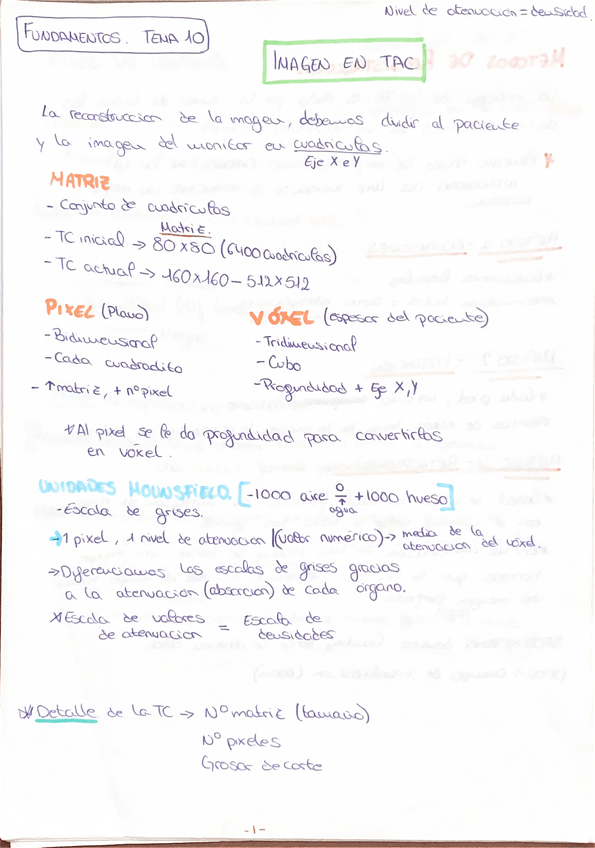 Nivel de atenuacion = densidad.
FUNDAMENTOS. TEMA 10
IMAGEN EN TAC
La reconstruccion de la imagen, debemos dividir al paciente
y la imagen del monitor en cuadriculas.
Eje X e Y
MATRIZ
- Conjunto de cuadriculas
Matriz.
- TC inicial → 80x80 (6400 cuadriculas)
- TC actual → 160x160 - 512x512
PIXEL (Plano)
- Bidimensional
- Cada cuadradito
- ↑matriz, + nº pixel
VÓXEL (espesor del paciente)
- Tridimensional
- Cubo
- Profundidad + Eje X, Y
* Al pixel se le da profundidad para convertirlos
en vóxel.
UNIDADES HOUNSFIELD. [-1000 aire 0 +1000 hueso]
↑
agua
- Escala de grises.
→ 1 pixel, 1 nivel de atenuacion (valor numérico) → media de la
atenuacion del vóxel.
→ Diferenciamos las escalas de grises gracias
a la atenuacion (absorcion) de cada organo.
* Escala de valores = Escala de
de atenuacion densidades
* Detalle de la TC → Nº matriz (tamaño)
Nº pixeles
Grosor de corte
- 1 -